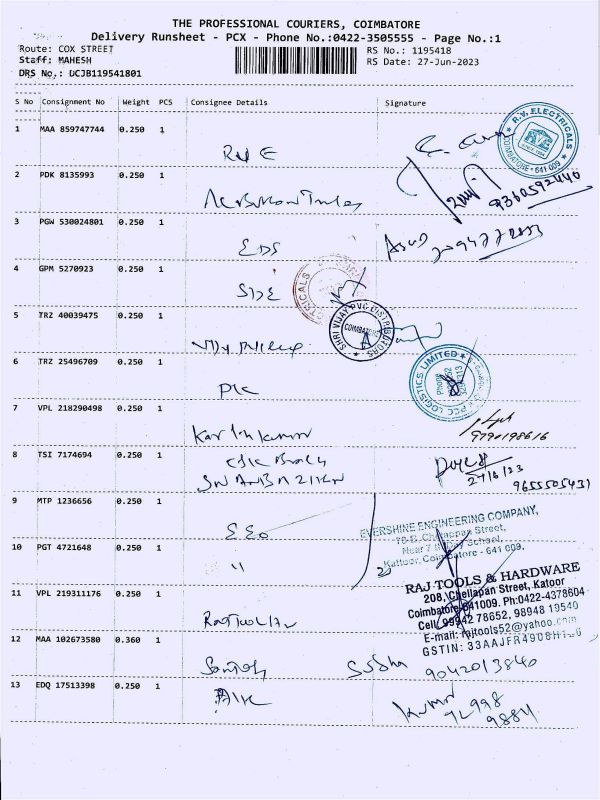 THE PROFESSIONAL COURIERS, COIMBATORE
Delivery Runsheet - PCX - Phone No.:0422-3505555 - Page No.:1
Route: COX STREET
RS No.: 1195418
Staff: MAHESH
RS Date: 27-Jun-2023
DRS No.: DCJB119541801
S No Consignment No Weight PCS Consignee Details Signature
1 MAA 859747744 0.250 1
R.V. ELECTRICALS
COIMBATORE - 641 009
RVE
2 PDK 8135993 0.250 1
9360592446
3 PGW 530024801 0.250 1
EDS
4 GPM 5270923 0.250 1
SIDE
5 TRZ 40039475 0.250 1
SHRI VIJAY PVC DISTRIBUTORS
COIMBATORE
6 TRZ 25496709 0.250 1
PCC LOGISTICS LIMITED
Phone
PLC
7 VPL 218290498 0.250 1
Karthikumar
9790198616
8 TSI 7174694 0.250 1
27/6/23
9655505431
9 MTP 1236656 0.250 1
EVERSHINE ENGINEERING COMPANY,
EEO
10 PGT 4721648 0.250 1
Kattoor, Coimbatore - 641 009.
"
RAJ TOOLS & HARDWARE
11 VPL 219311176 0.250 1
208, Chellapan Street, Katoor
Coimbatore-641009. Ph:0422-4378604
Cell: 99942 78652, 98948 19540
E-mail: rajtools52@yahoo.com
12 MAA 102673580 0.360 1
Santosh
9042013840
13 EDQ 17513398 0.250 1
Kumar